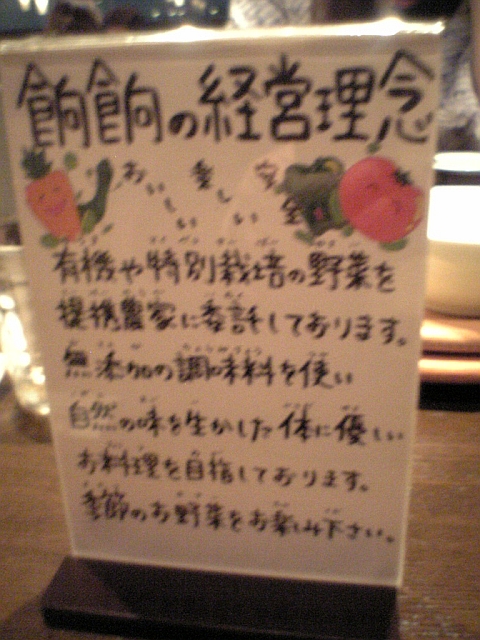 餉餉の経営理念
おいしい 楽しい 安全
有機や特別栽培の野菜を
提携農家に委託しております。
無添加の調味料を使い
自然の味を生かした体に優しい
お料理を目指しております。
季節のお野菜をお楽しみ下さい。